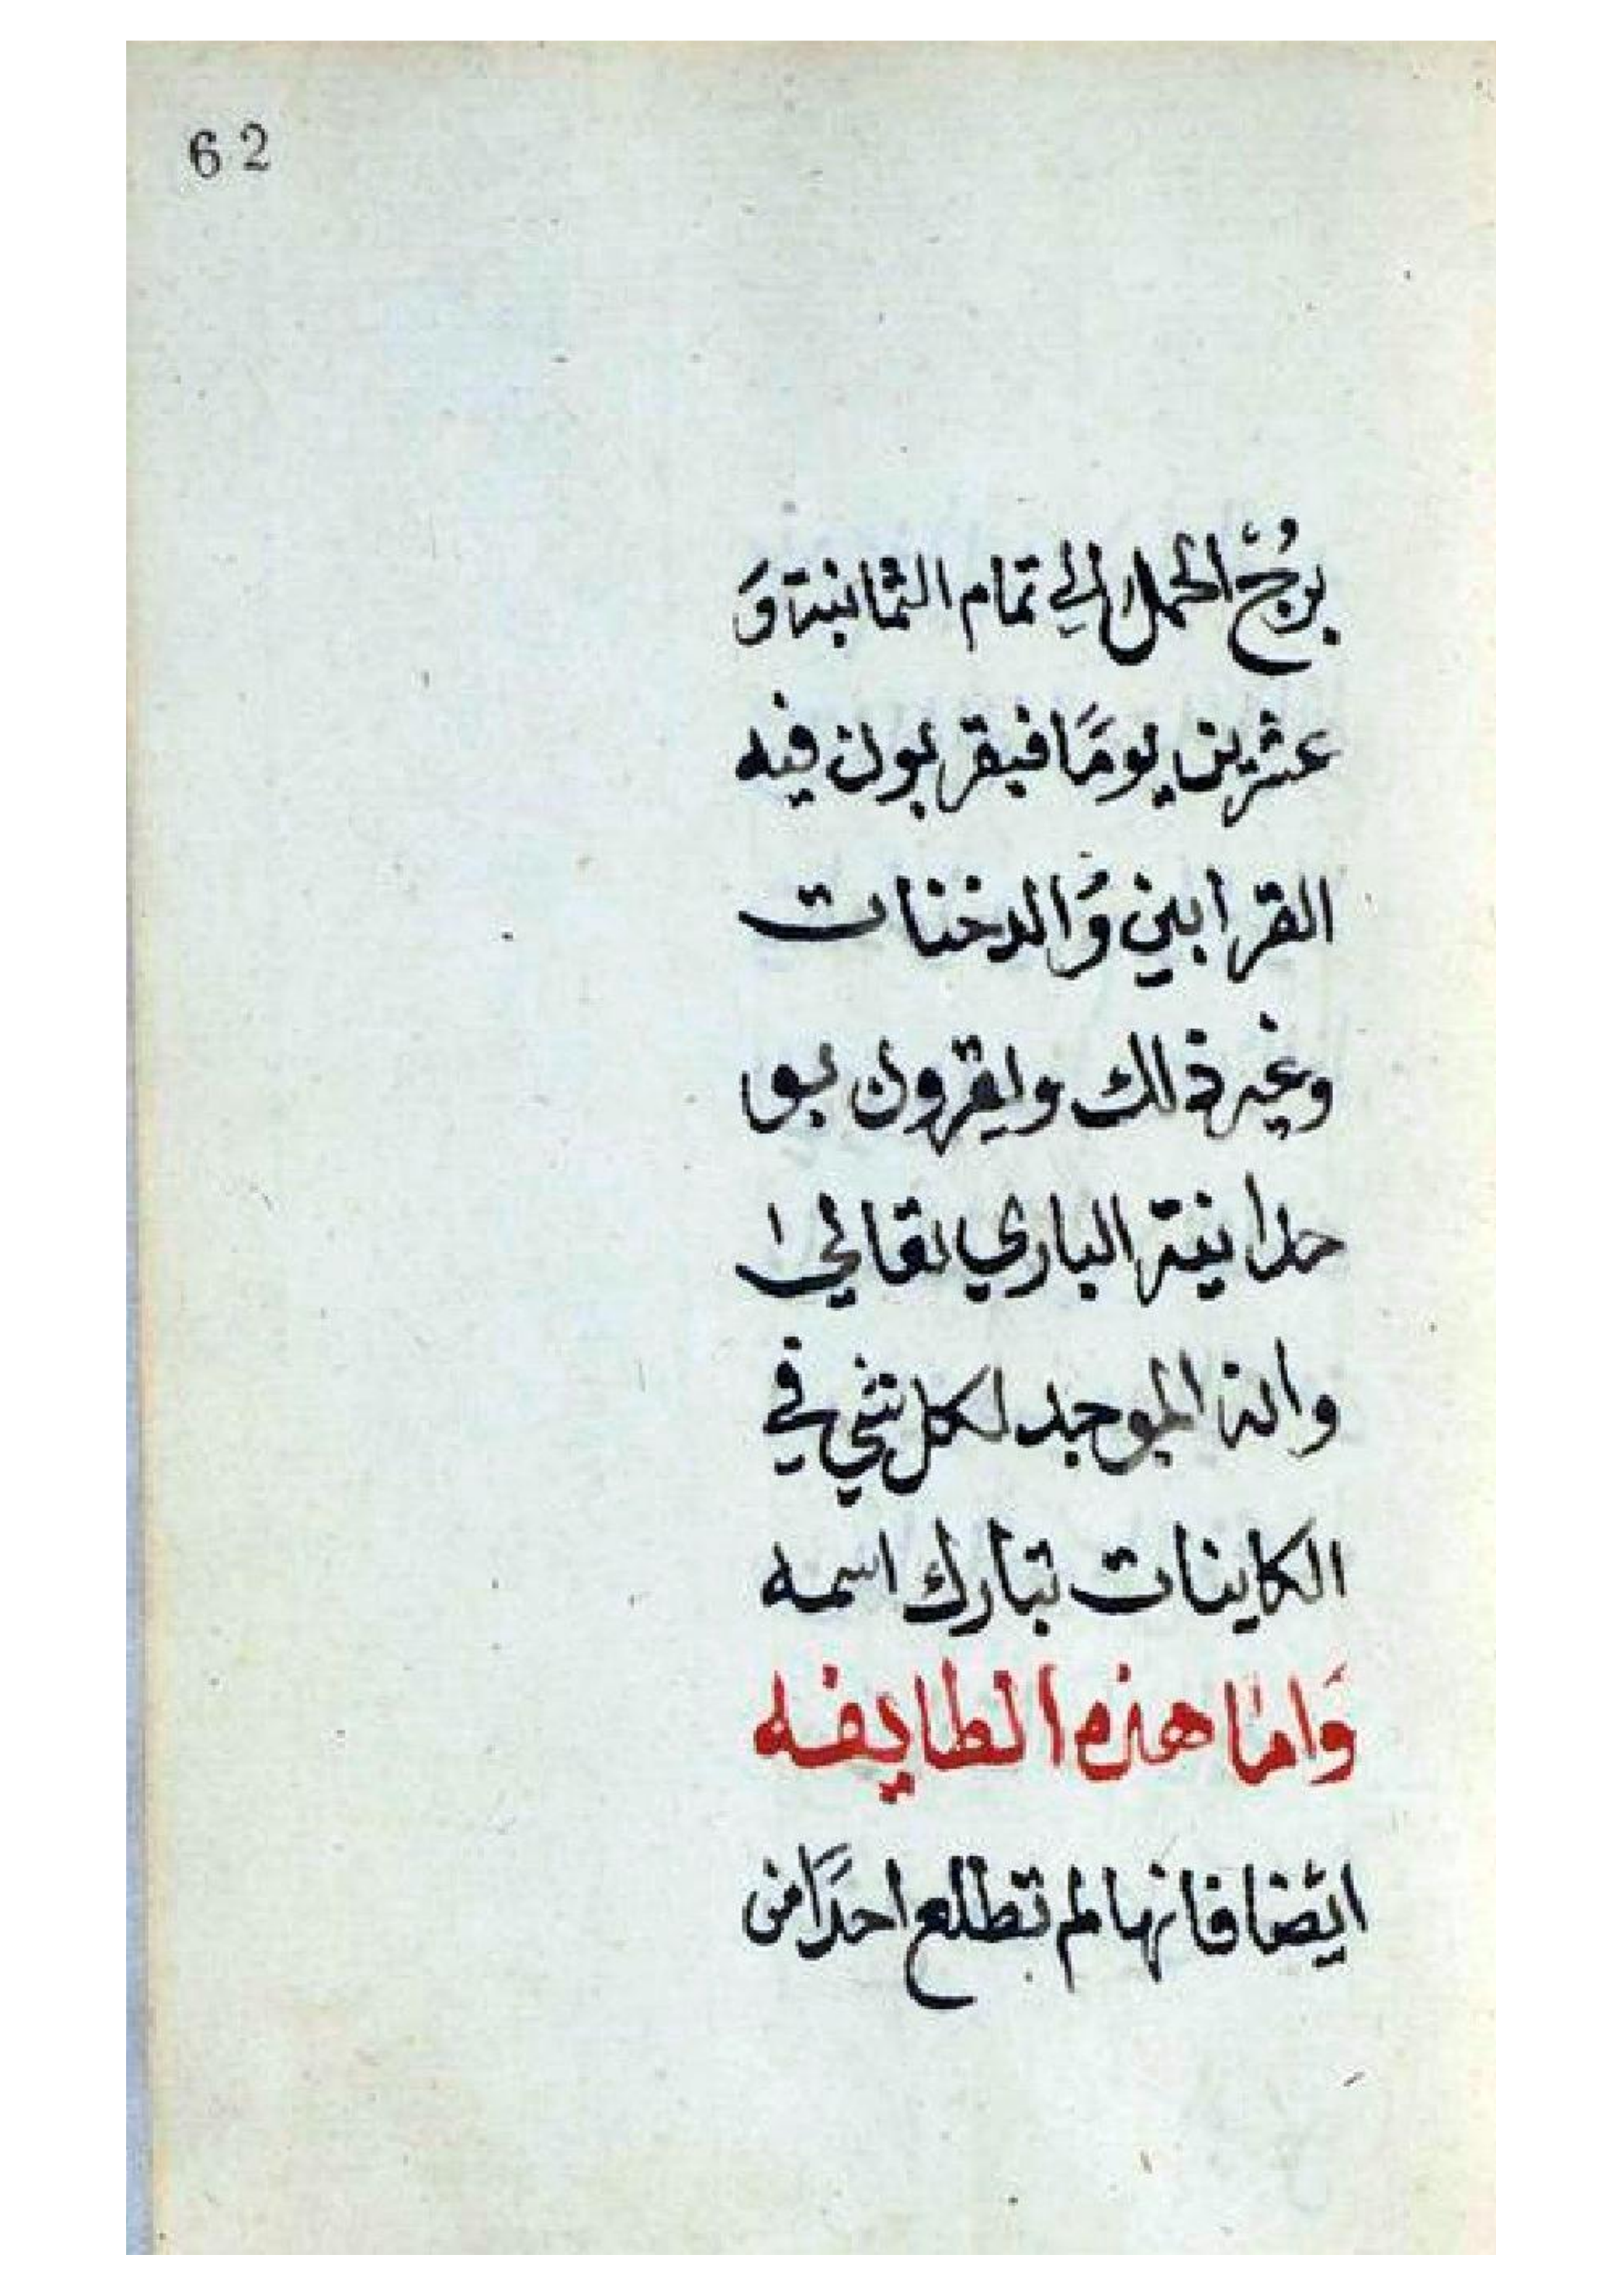 62
برُجّ الحمل الي تمام الثمانية وَ
عشرين يومًا فيقربون فيه
القرابين وُالدخنات
وغير ذلك ويقرون بو
حدانية الباري تعالي ا
وانه الموجد لكل شي في
الكاينات تبارك اسمه
وَاما هذه الطايفه
ايضا فانها لم تطلع احدًا من